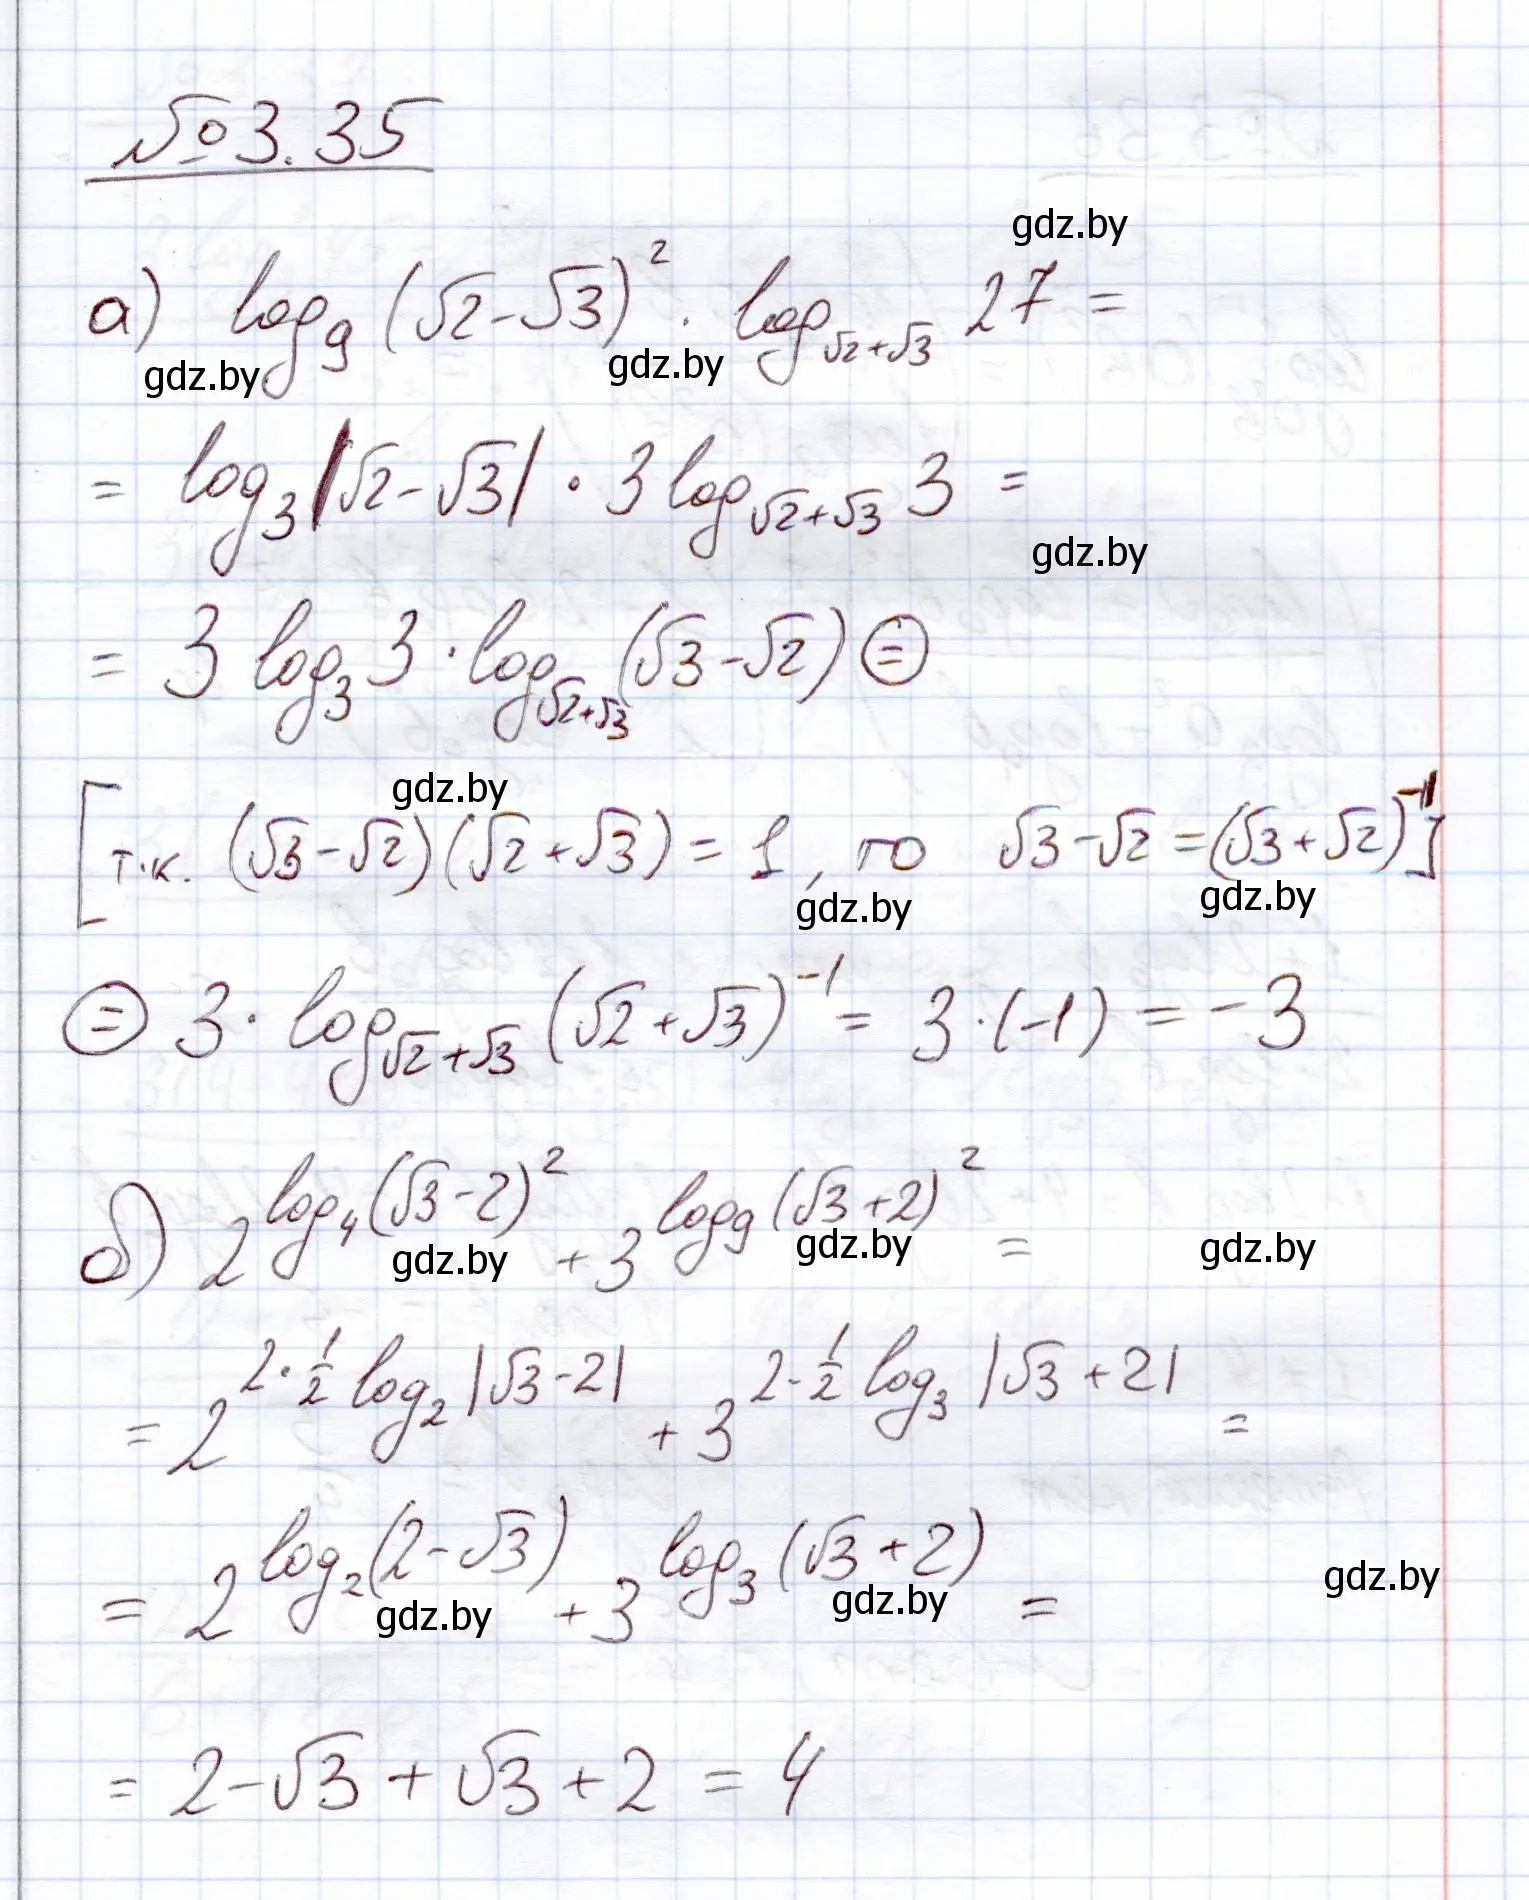 №3.35
gdz.by
а) log₉(√2-√3)² · log_{√2+√3} 27 =
gdz.by gdz.by
= log₃|√2-√3| · 3 log_{√2+√3} 3 =
gdz.by
= 3 log₃3 · log_{√2+√3}(√3-√2) ⊜
gdz.by
[т.к. (√3-√2)(√2+√3) = 1, то √3-√2 = (√3+√2)⁻¹]
gdz.by gdz.by
⊜ 3 · log_{√2+√3}(√2+√3)⁻¹ = 3·(-1) = -3
б) 2^{log₄(√3-2)²} + 3^{log₉(√3+2)²} =
gdz.by gdz.by gdz.by
= 2^{2·½ log₂|√3-2|} + 3^{2·½ log₃|√3+2|} =
= 2^{log₂(2-√3)} + 3^{log₃(√3+2)} =
gdz.by gdz.by gdz.by
= 2-√3 + √3+2 = 4